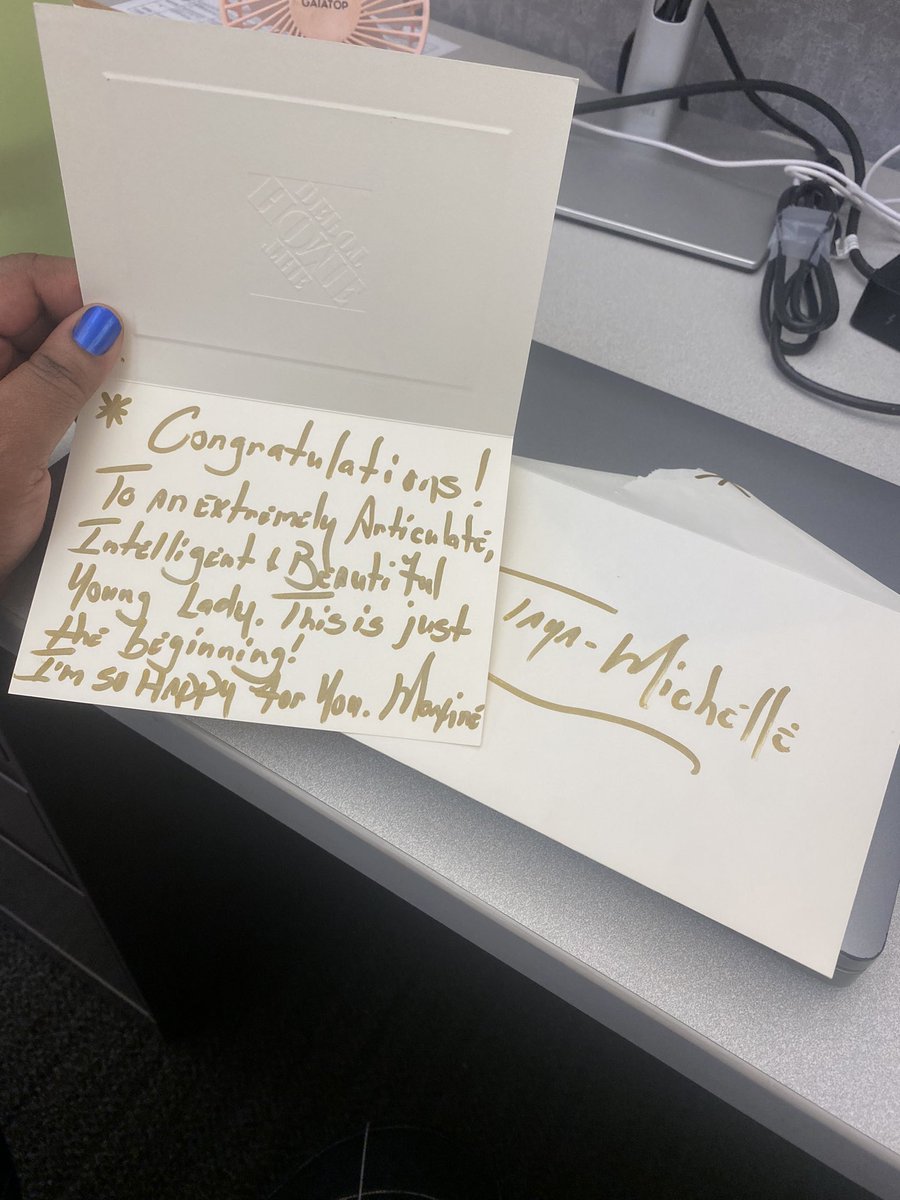 GAIATOP
THE
HOME
DEPOT
* Congratulations!
To an extremely Articulate,
Intelligent & Beautiful
Young Lady. This is just
the beginning!
I'm so Happy for You. Maxine
Taya-Michelle